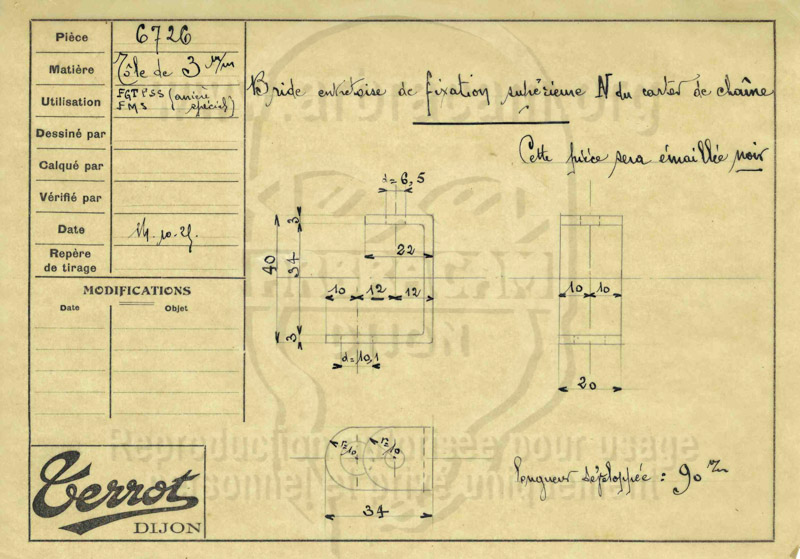 Pièce 6726
Matière Tôle de 3 m/m
Utilisation FGT PSS (arrière
FMS spécial)
Dessiné par
Calqué par
Vérifié par
Date
Repère
de tirage
MODIFICATIONS
Date Objet
Bride entretoise de fixation supérieure N du carter de chaîne
Cette pièce sera émaillée noir
d=6,5
3
22
40
34
10 12 12
3
d=10,1
10 10
20
r=10 r=10
34
longueur développée : 90 m/m
Terrot
DIJON
ARBRACAM
DIJON
Reproduction autorisée pour usage
personnel et privé uniquement